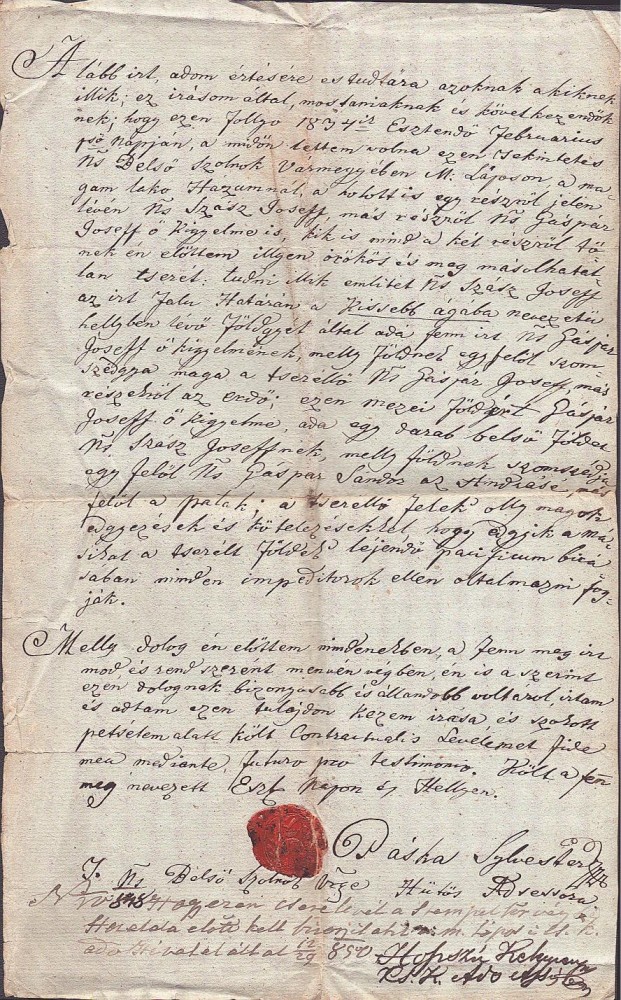 Alább irt, adom értésére es tudtára azoknak akiknek
illik; ez irásom által, mostaniaknak és következendők
nek; hogy ezen follyo 1834ik Esztendő Februarius
Napján, a midőn lettem volna ezen Tekintetes
Ns Belső Szolnok Vármegyében M. Láposon, a ma-
gam lako Hazamnál, a holott is egy részről jelen
lévén Ns Szász Joseff, más részről Ns Gáspár
Joseff ő kigyelme is, kik is mind a két részről tő
nek én előttem illyen örökös és meg másolhatat
lan tserét: tudni illik emlitet Ns Szász Joseff
az irt Falu Határán a Kissebb ágába nevezetü
hellyben lévő Földgyét által adá fenn irt Ns Gáspár
Joseff ő kigyelmének, melly Földnek egy felöl szom-
szédgya maga a tseréllő Ns Gáspár Joseff, más
részéről az erdő; ezen mezei földért Gáspár
Joseff ő kigyelme, ada egy darab belső Földet
Ns Szasz Joseffnek, melly földnek szomszédja
egy felöl Ns Gaspar Sandor az más
felöl a patak; a tserellő Felek olly magok
edgyezések és kötelezésekkel, hogy edgyik a má-
sikat a tserélt Földek léjendő pacificum birá
sában minden impeditorok ellen oltalmazni fog-
ják.
Melly dolog én előttem mindenekben, a Fenn meg irt
mod, és rend szerént menvén végben, én is a szerint
ezen dolognak bizonyosabb és állandobb voltárol, irtam
és adtam ezen tulajdon kezem irása, és szokott
petsétem alatt költ Contractualis Levelemet fide
mea mediante, futuro pro testimonio. Költ a fen
meg nevezett Eszt Napon és Hellyen.
Páska Sylvester
T. Ns Belső Szolnok Vgye Hütös Assessora
Nro 848 Hogy ezen Cserelevél a Stempel törvény
Hozatala előtt kelt bizonyittatik m. Lápos
ado Hivatal által 850